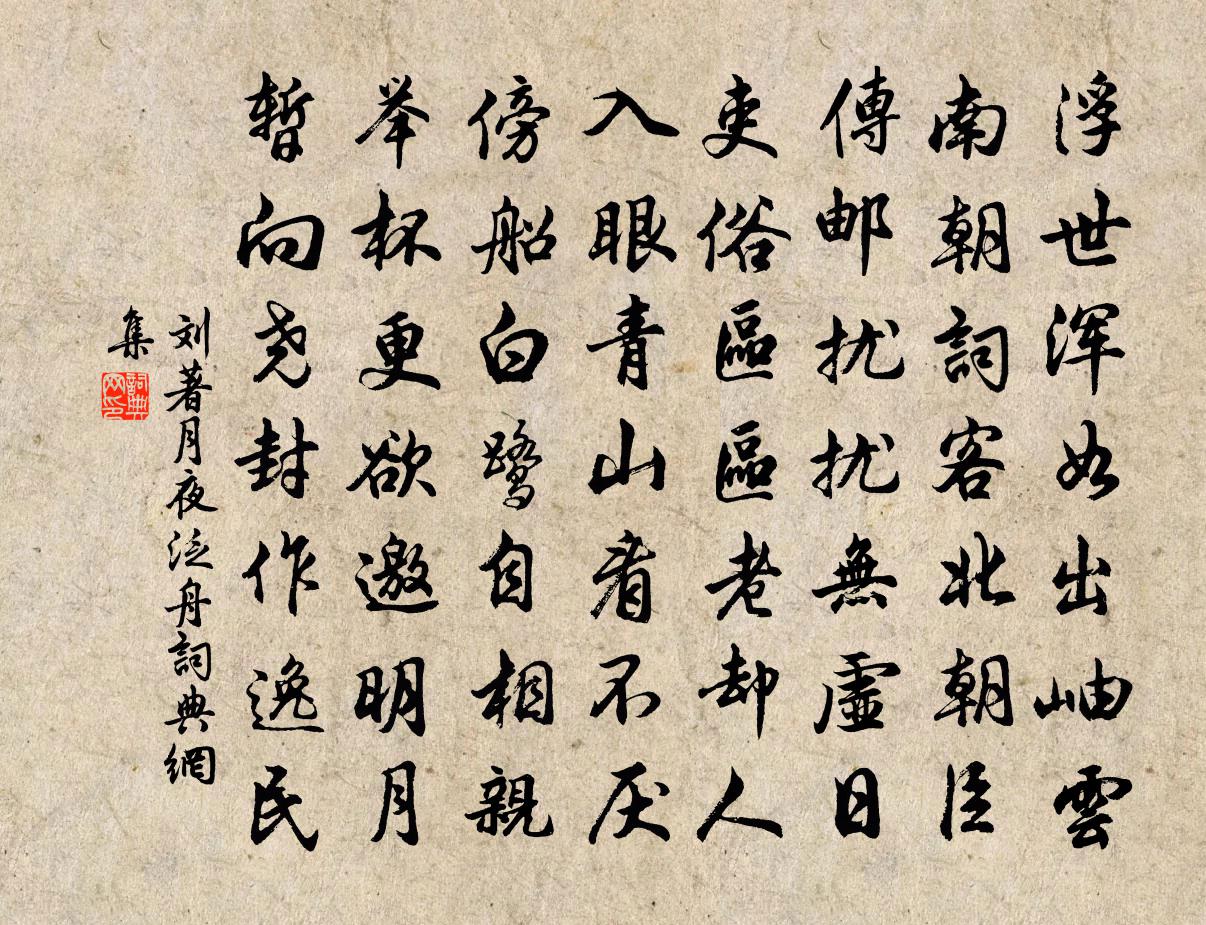 浮世浑如出岫雲
南朝詞客北朝臣
傳邮扰扰無虛日
吏俗區區老却人
入眼青山看不厌
傍船白鹭自相親
举杯更欲邀明月
暂向尧封作逸民
刘著月夜泛舟詞典網
集
詞典网印